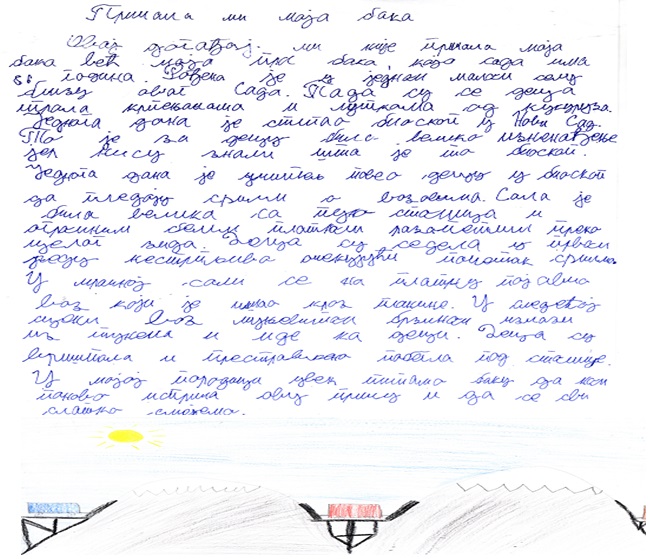 Причала ми моја бака
Овај догађај ми није причала моја
бака већ моја пра бака, која сада има
година. Рођена је у једном малом селу
близу овог Сада. Тада су се деца
играла крпењачама и луткама од кукуруза.
Једнога дана је стигао биоскоп у Нови Сад.
То је за децу било велико изненађење
јер нису знали шта је то биоскоп.
Једнога дана је учитељ повео децу у биоскоп
да гледају филм о возовима. Сала је
била велика са пуно столица и
огромним белим платном разапетим преко
целог зида. Деца су седела у првом
реду нестрпљиво очекујући почетак филма.
У мрачној сали се на платну појавио
воз који је ишао кроз планине. У следећој
сцени воз муњевитом брзином излази
из тунела и иде ка деци. Деца су
вриштала и престрављено побегла под столице.
У мојој породици увек питамо баку да нам
поново исприча ову причу и да се сви
слатко смејемо.